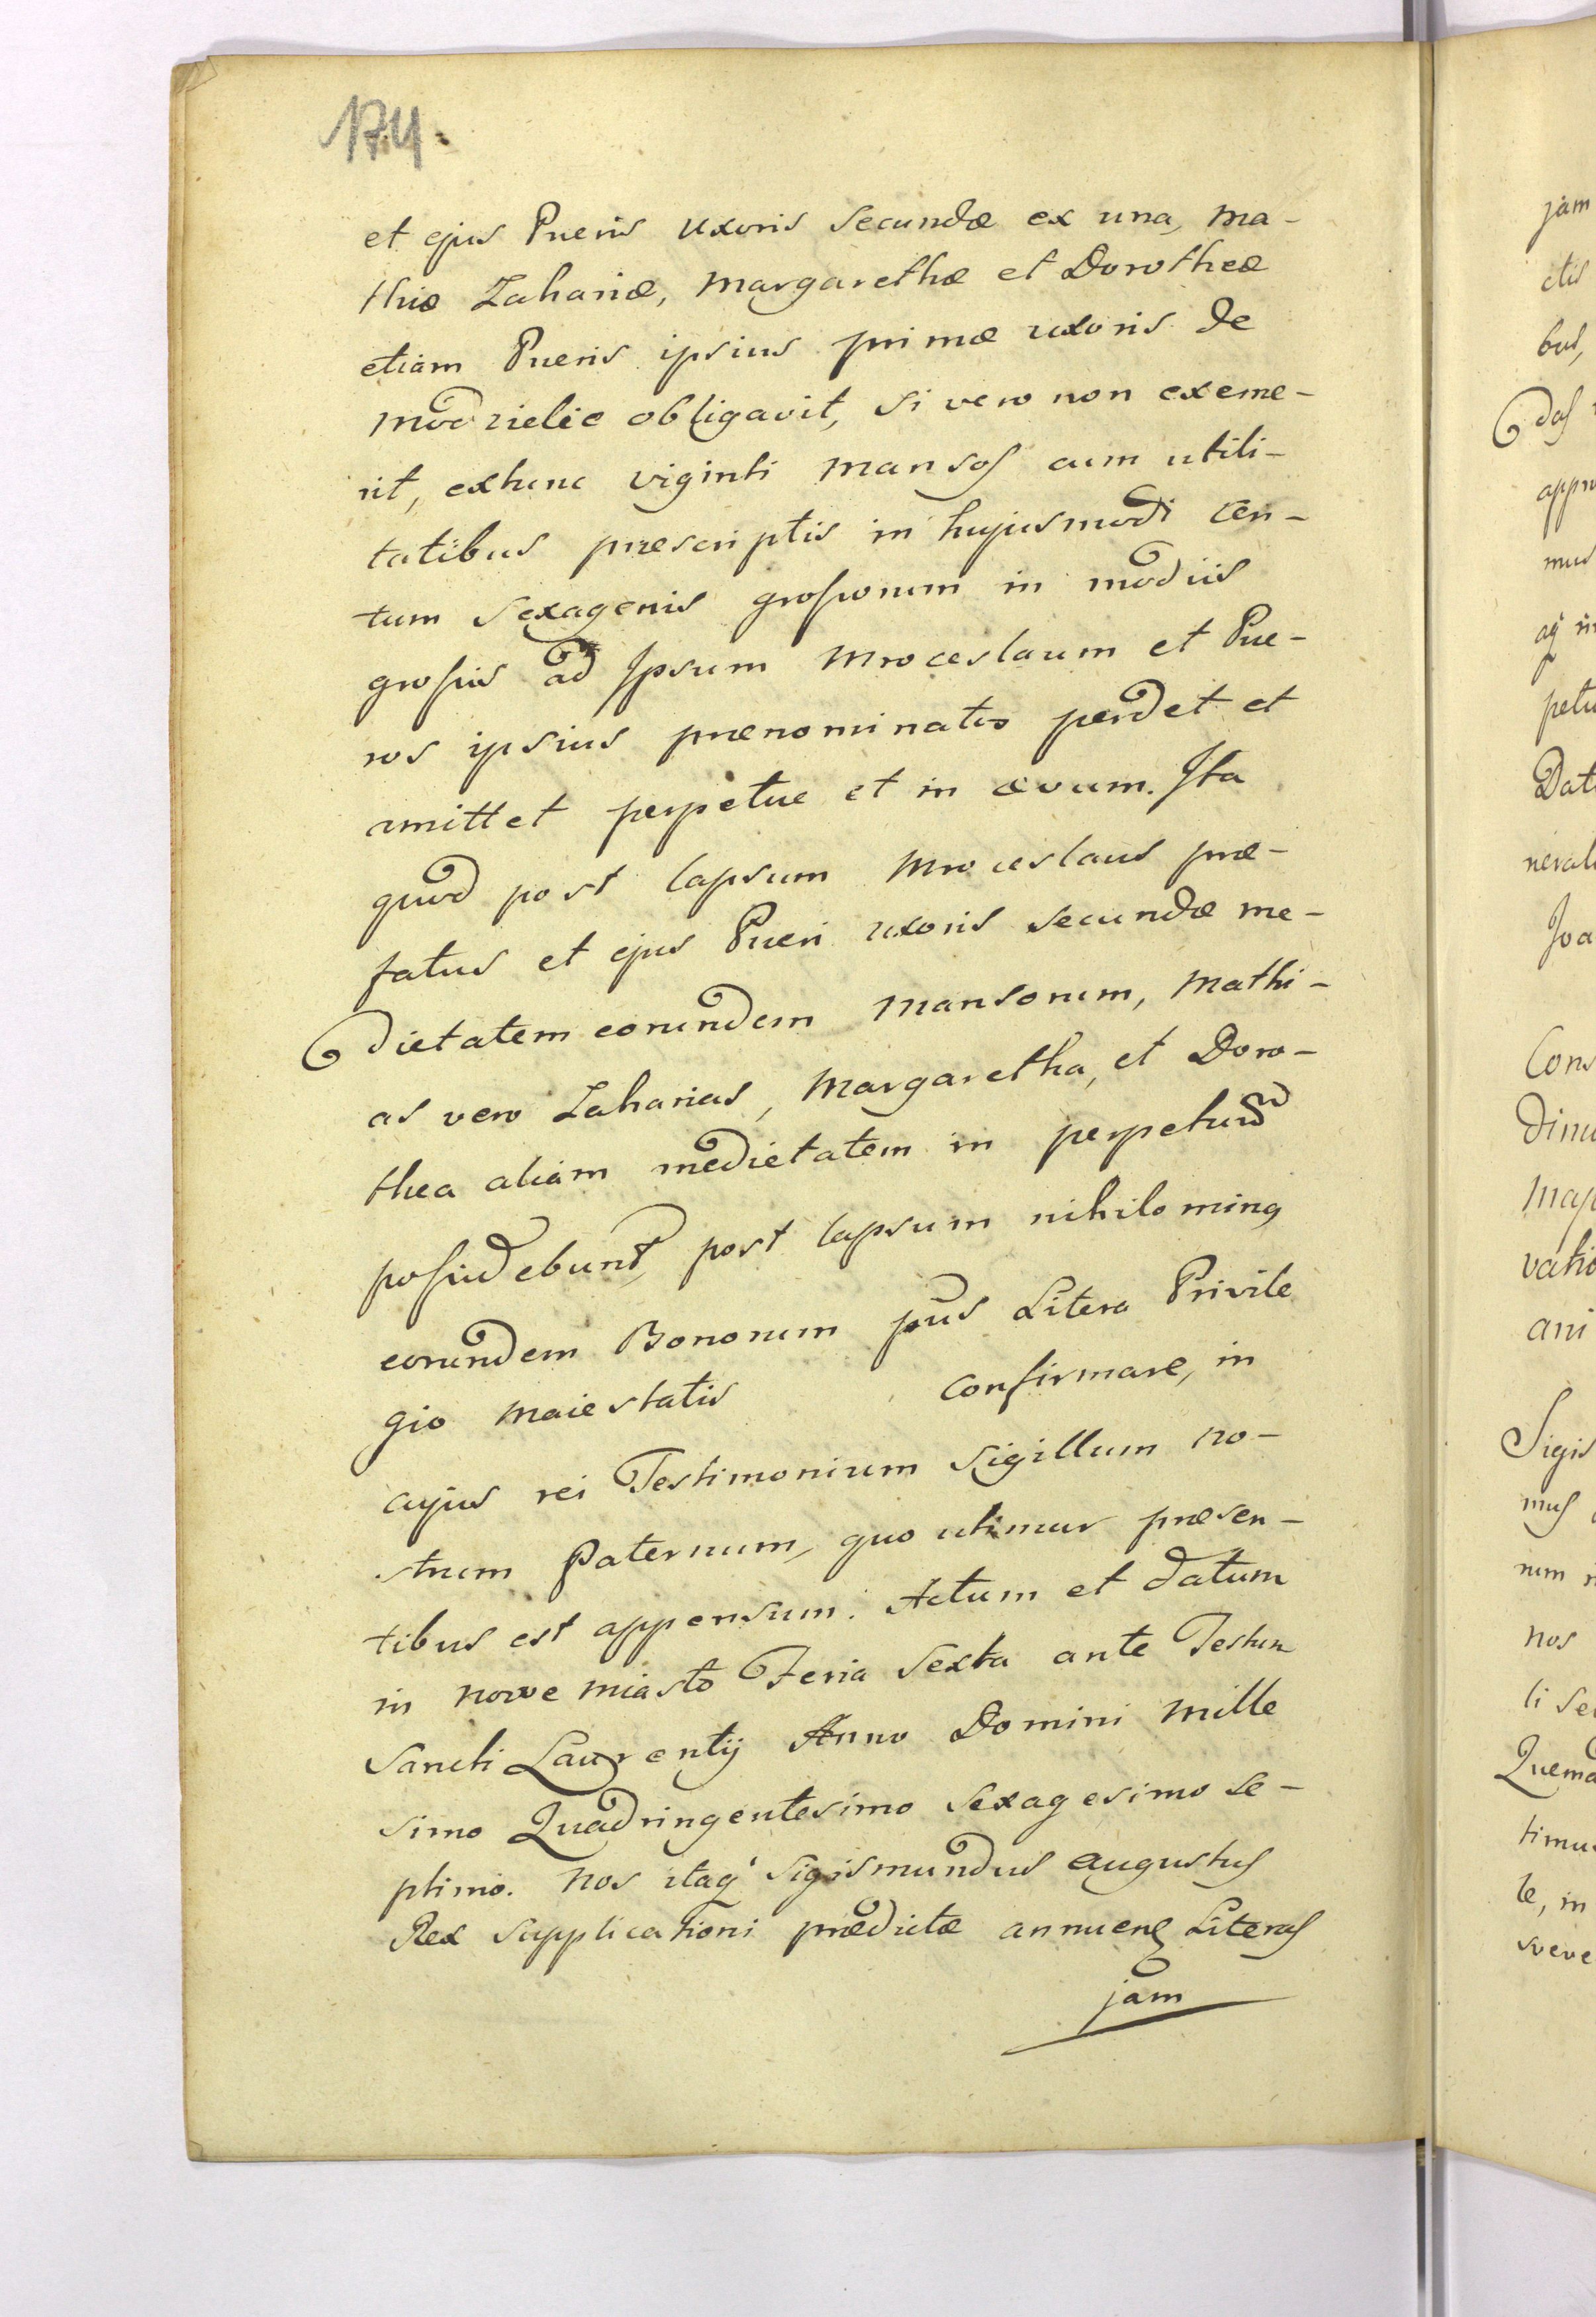 174.
et ejus Pueris Uxoris Secundæ ex una, Ma-
thiæ Zahariæ, Margarethæ et Dorotheæ
etiam Pueris ipsius primæ uxoris de
Modrielie obligavit, si vero non exeme-
rit, extunc viginti mansos cum utili-
tatibus præscriptis in hujusmodi Cen-
tum Sexagenis grossorum in mediis
grossis ad Ipsum Mroceslaum et Pue-
ros ipsius prænominatos perdet et
amittet perpetue et in ævum. Ita
quod post lapsum Mroceslaus præ-
fatus et ejus Pueri uxoris secundæ me-
dietatem eorundem Mansorum, Mathi-
as vero Zaharias, Margaretha, et Doro-
thea aliam medietatem in perpetuum
possidebunt, post lapsum nihilominq
eorundem Bonorum pus Litera Privile
gio Maiestatis confirmare, in
cujus rei Testimonium Sigillum no-
strum Paternum, quo utimur præsen-
tibus est appensum. Actum et datum
in nowe miasto Feria Sexta ante Festum
Sancti Laurentij Anno Domini Mille
simo Quadringentesimo Sexagesimo Se-
ptimo. Nos itaq' Sigismundus Augustus
Rex Supplicationi prædictæ annuens Literas
jam
jam
ctis
bus,
das
appro
mus
aq in
petu
Dat
neral
Joa
Cons
dinu
Maj
vatio
ani
Sigis
mus
rum
nos
li Se
Quema
timus
le, in